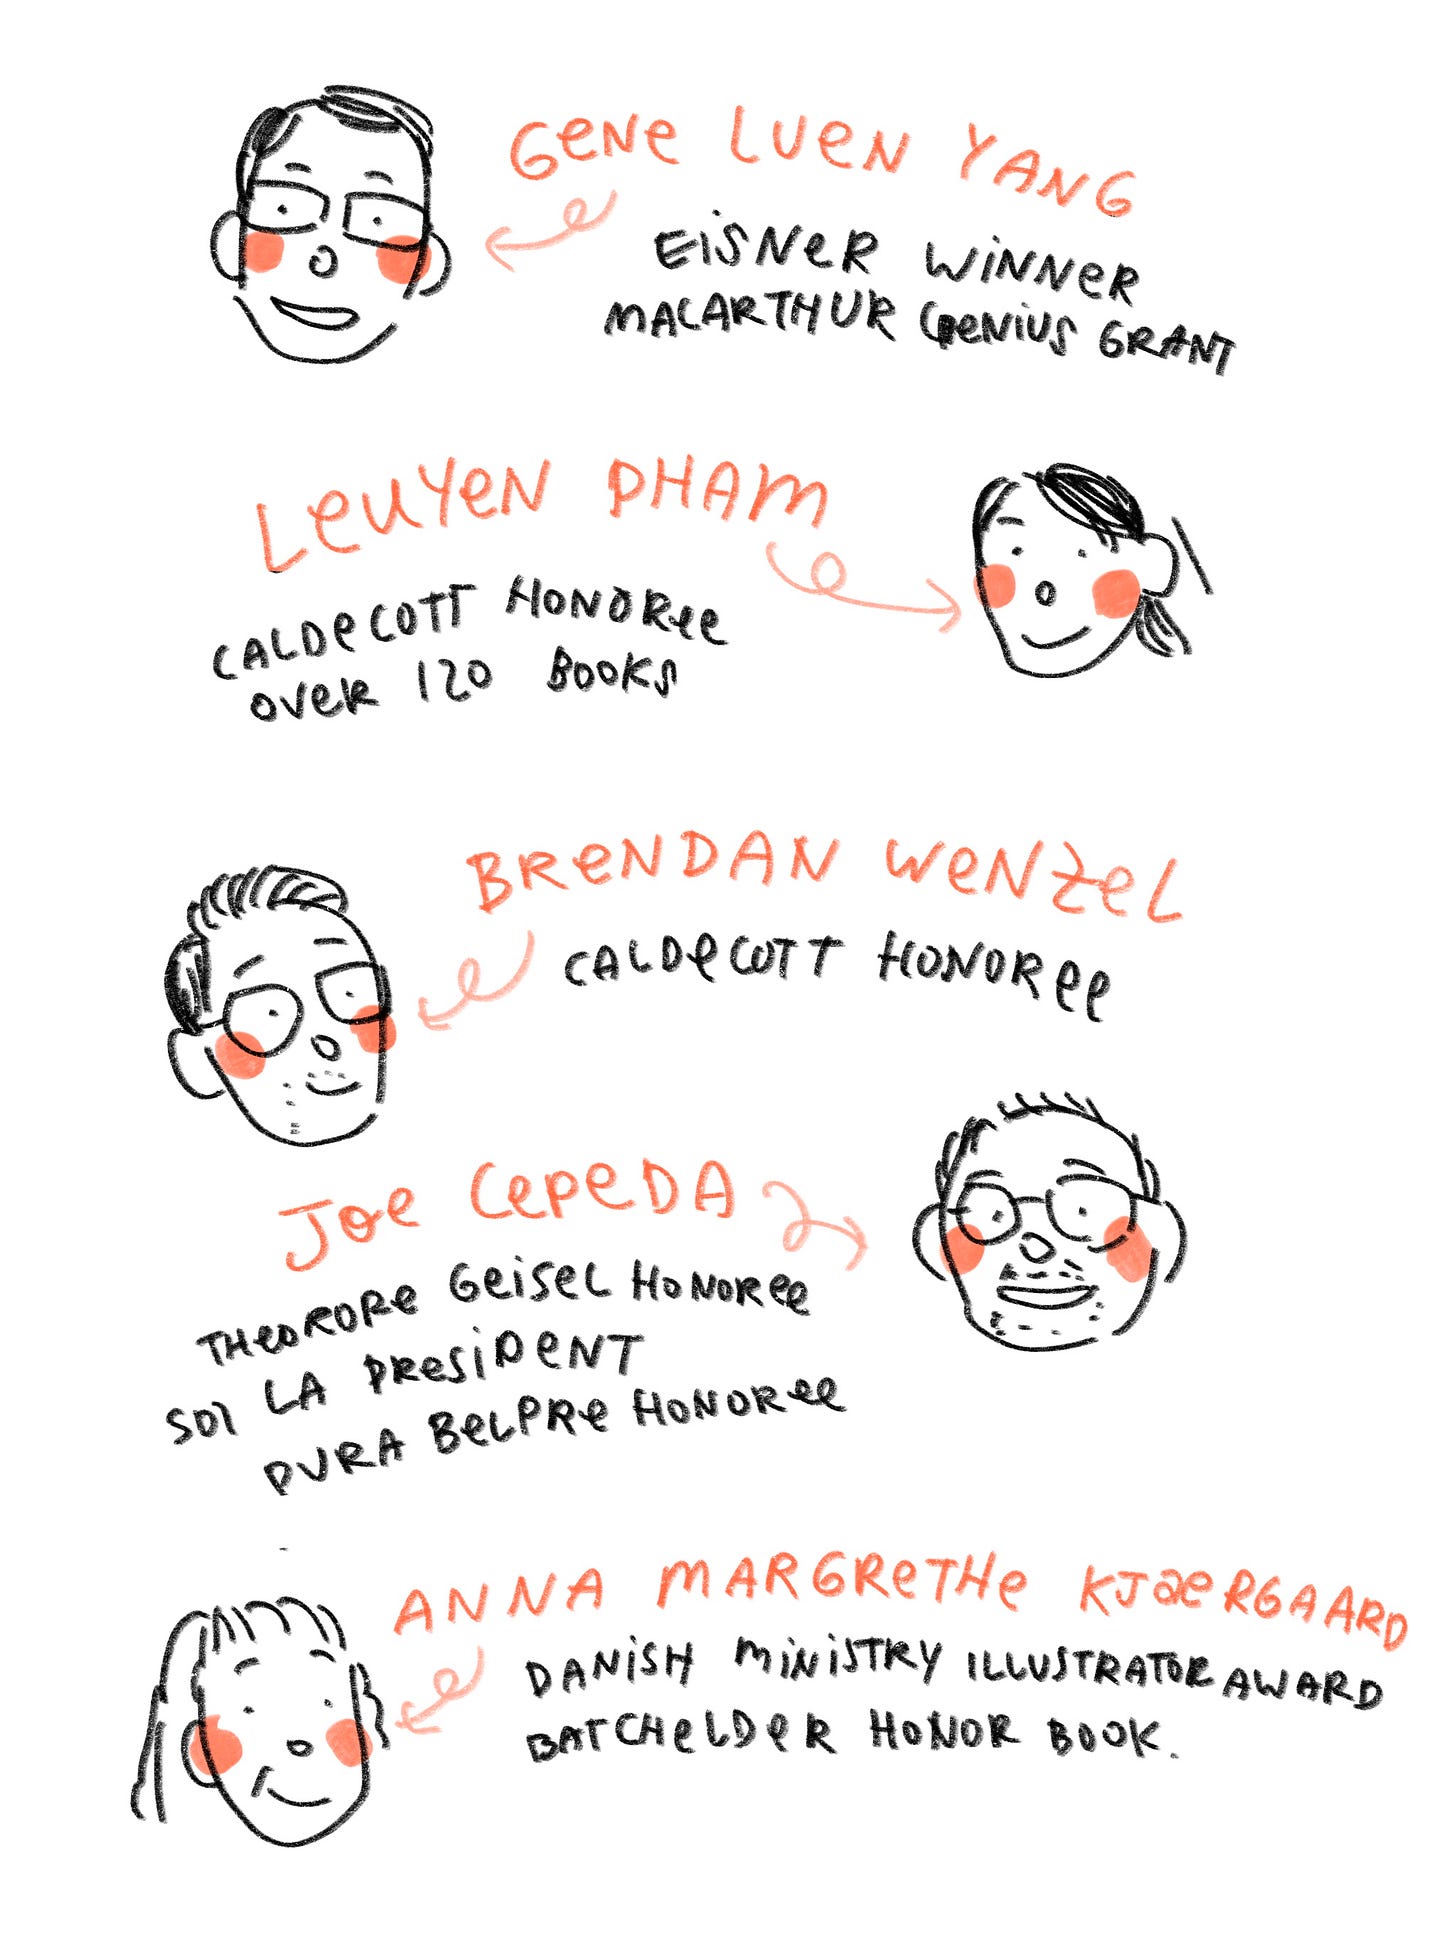 GeNe LUeN YANG
EiSNeR WiNNeR
MACARTHUR GeNiUS GRANT
LeUYeN PHAM
CALDeCOTT HONORee
OVeR 120 BOOKS
BReNDAN WeNZeL
CALDeCOTT HONORee
JOe CePeDA
THeORORe GeiSeL HONORee
SOI LA PReSiDeNT
PURA BeLPRe HONORee
ANNA MARGReTHe KJaeRGAARD
DANiSH MiNiSTRY ILLUSTRATOR AWARD
BATCHeLDeR HONOR BOOK.